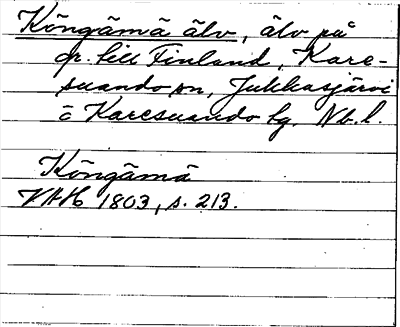 Köngämä älv, älv på
gr. till Finland, Kare-
suando sn, Jukkasjärvi
o Karesuando lg. Nb.l.
Köngämä
VAH 1803, s. 213.